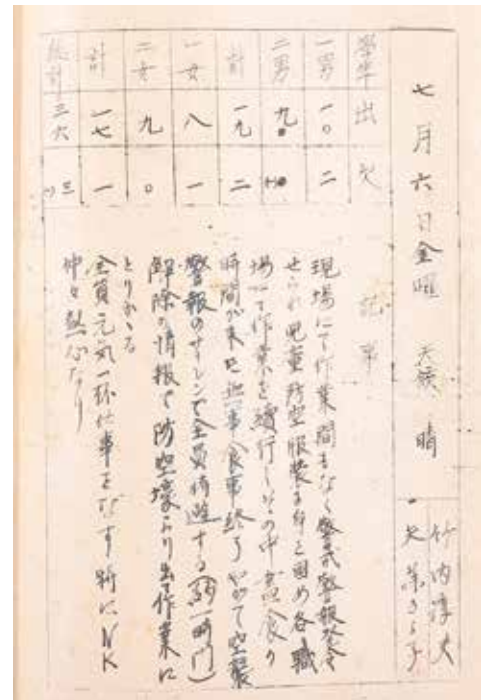 七月六日金曜 天候 晴
竹内淳夫
学年 出 欠
一男 一〇 二
二男 九
計 一九 二
一女 八 一
二女 九 〇
計 一七 一
総計 三六 三
記事
現場にて作業間もなく警戒警報発令
せられ児童防空服装に身を固め各職
場にて作業を続行しその中昼食の
時間が来た無事食事終り やがて空襲
警報のサイレンで全員待避する(約一時間)
解除の情報で防空壕より出て作業に
とりかゝる
全員元気一杯仕事をなす 特にNK
仲々熱心なり